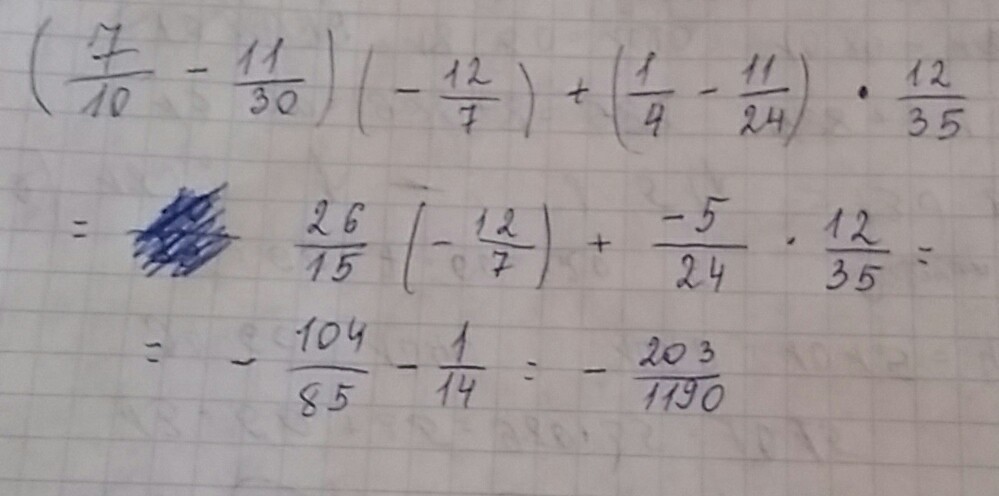 (7/10 - 11/30) (- 12/7) + (1/4 - 11/24) · 12/35
= 26/15 (- 12/7) + -5/24 · 12/35 =
= - 104/85 - 1/14 = - 203/1190